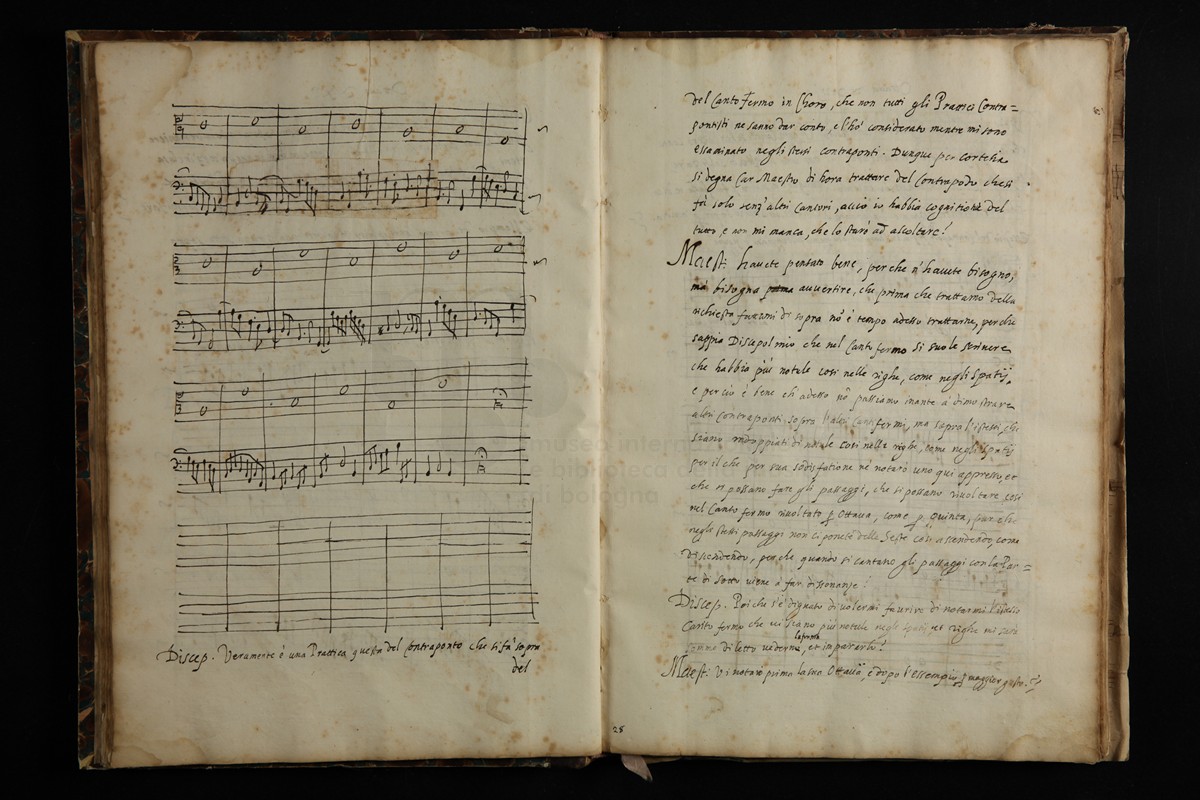 Discep. Veramente è una Prattica questa del Contraponto che si fà sopra
del
del Canto fermo in Choro, che non tutti gli Prattici Contra=
pontisti ne sanno dar conto, e l'hò considerato mentre mi sono
essaminato negli stessi contraponti. Dunque per cortesia
si degna Car Maestro di hora trattare del Contraponto che si
fà solo senz'altri Cantori, acciò io habbia cognitione del
tutto, e non mi manca, che lo starò ad ascoltare!
Maest: havete pensato bene, perche n'havete bisogno,
mà bisogna avvertire, che prima che trattamo della
richiesta di sopra nò è tempo adesso trattarne, perche
sappia Discepol mio che nel Canto fermo si suole scrivere
che habbia più notule così nelle righe, come negli Spatij,
e perciò è bene ch'adesso nò passiamo inante à dimostrare
altri contraponti sopra l'altri Canti fermi, ma sopra l'istessi, che
siano radoppiati di notule così nelle righe, come negli Spatij
per il che per sua sodisfatione ne notarò uno qui appresso, et
che si possano fare gli passaggi, che si possano rivoltare così
nel Canto fermo rivoltato p Ottava, come p Quinta, pur che
negli stessi passaggi non ci ponete delle Seste così ascendendo, come
discendendo, perche quando si cantano gli passaggi con la Par=
te di sotto viene a far dissonanze!
Discep. Poi che s'è dignato di volermi favrire di notarmi l'istesso
Canto fermo che vi siano più notule negli Spatij, et righe mi sarà
sommo diletto vederne la forma, et impararlo!
Maest: Vi notarò primo la sua Ottava, e dopo l'essempio p maggior gusto.
25
museo intern
e biblioteca d
di bologna